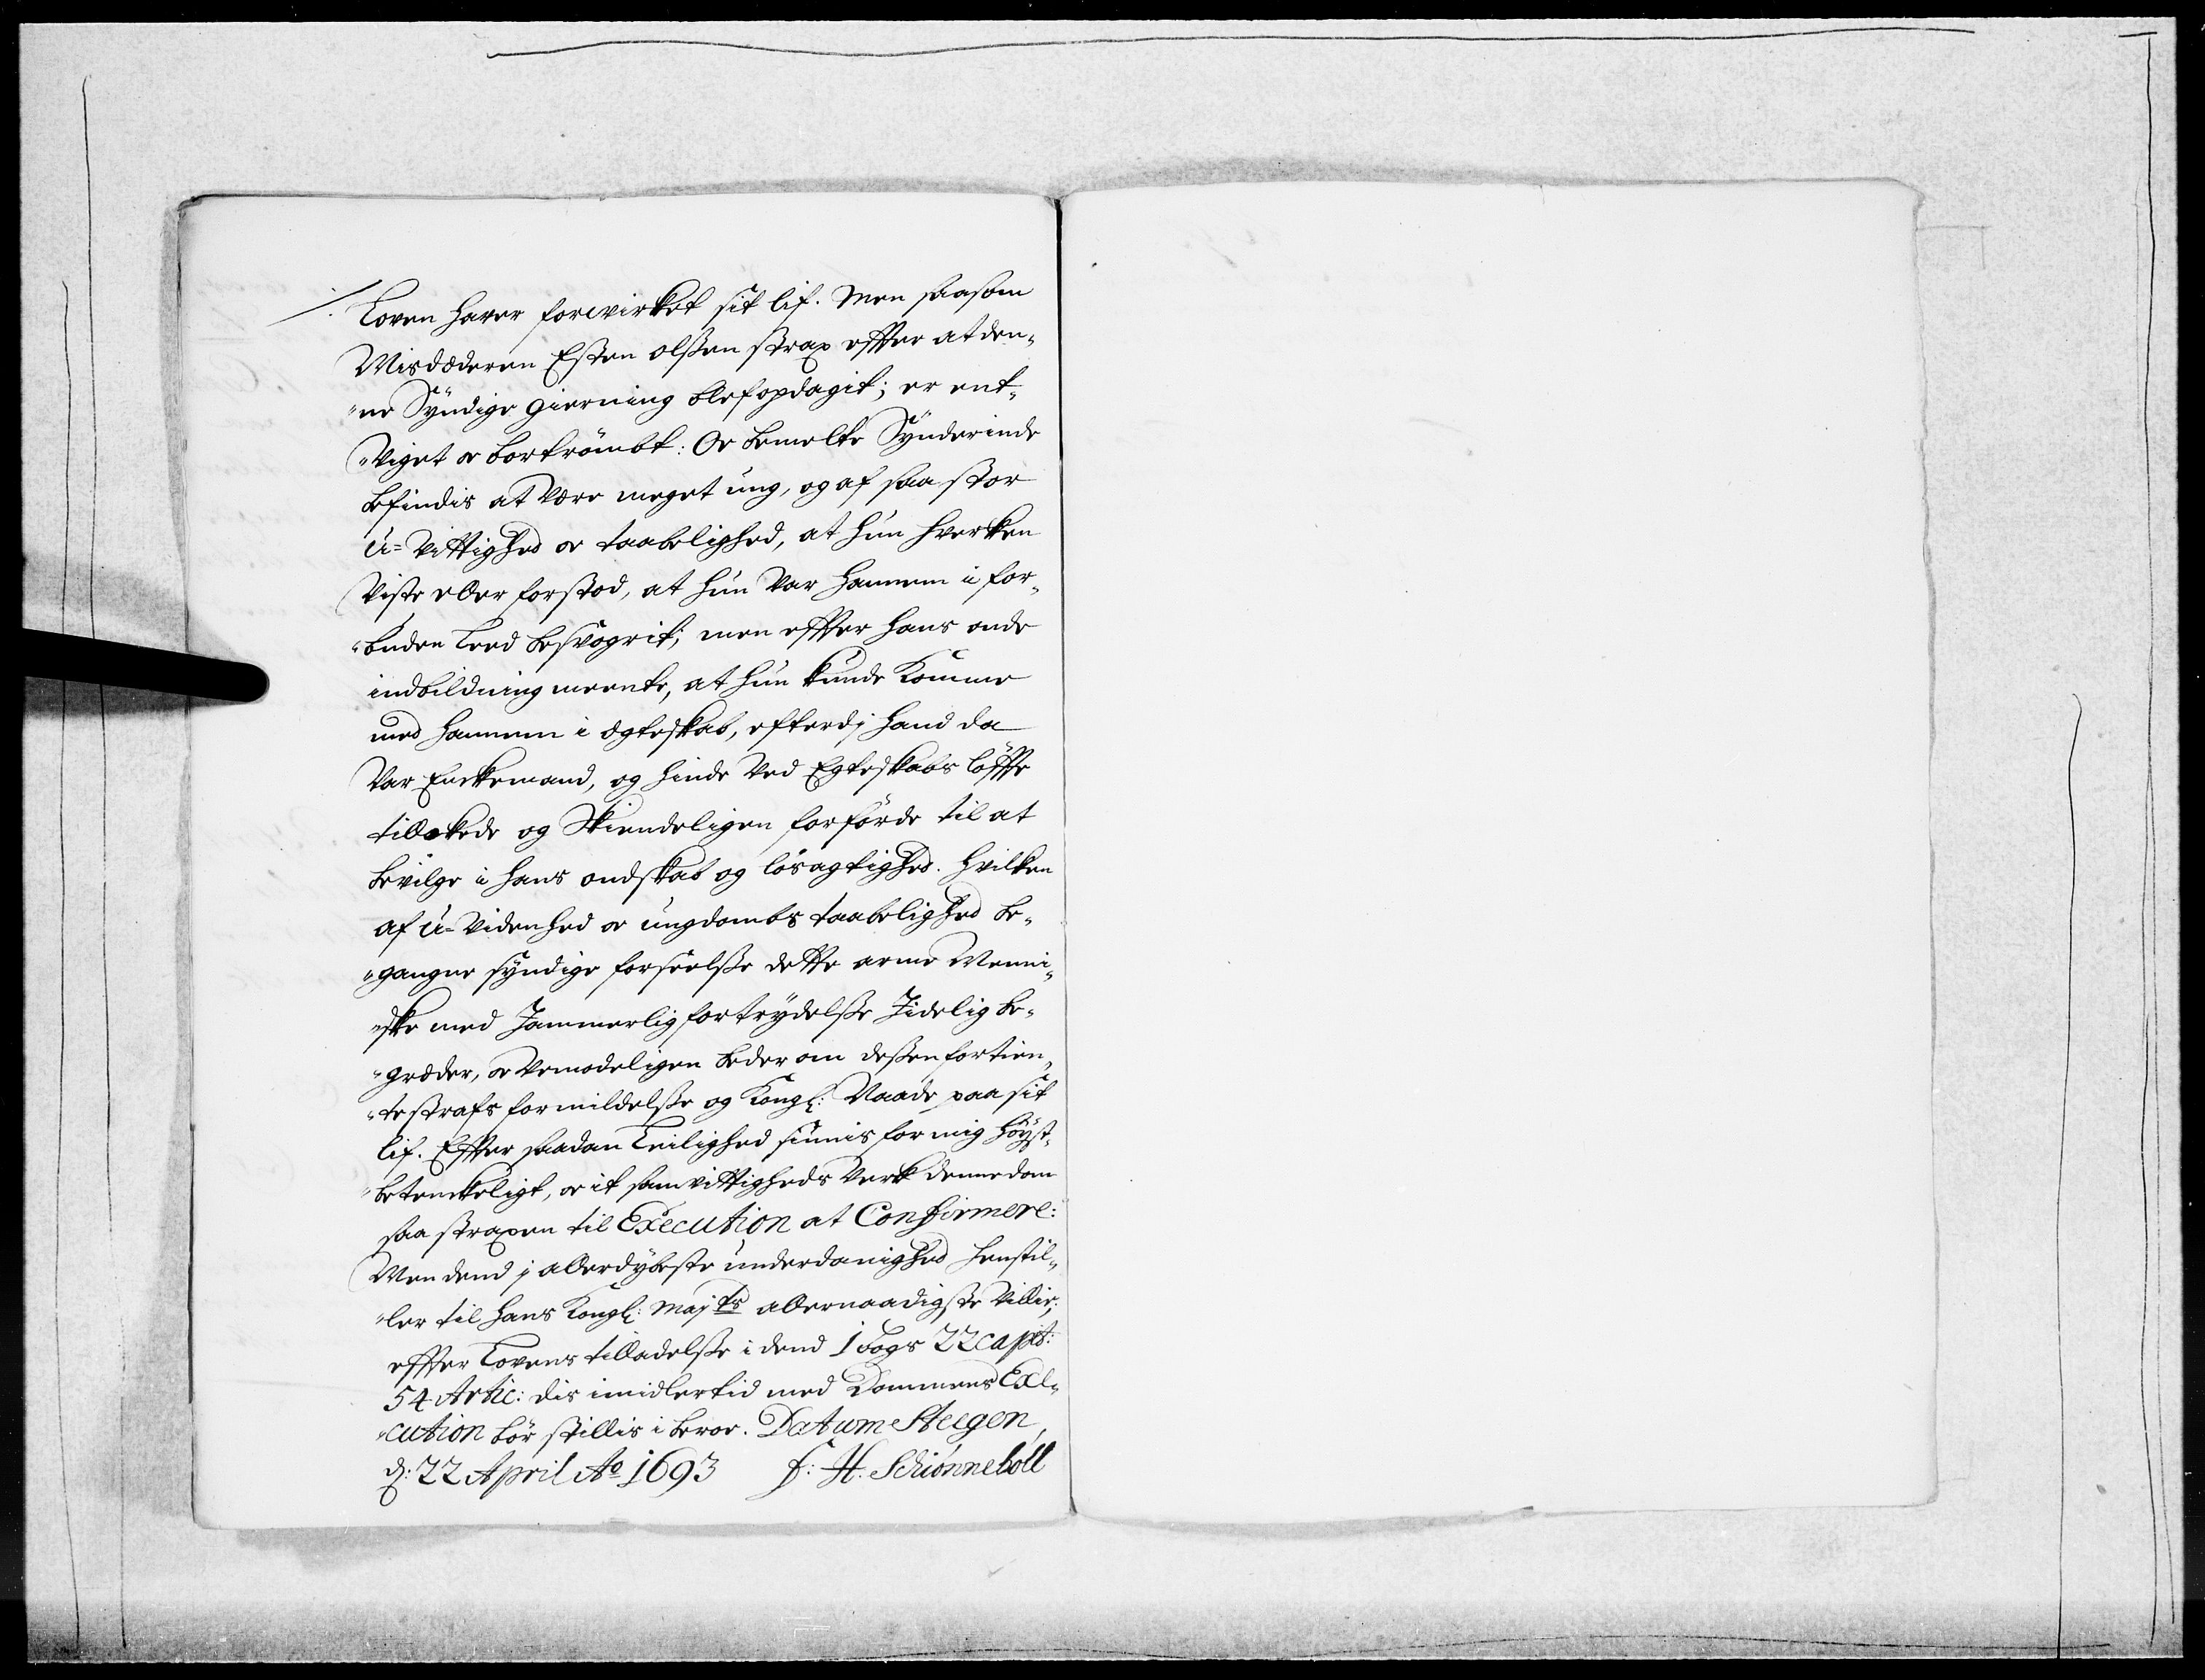 Loven haver forwirket sit lif. Men saasom
Misdæderen Esten Olssen strax effter at den¬
"ne Syndige Gierning blef opdagit; er ent¬
"viget oc bortrømbt: Oc bemelte Synderinde
befindis at være meget ung, og af saa stor
U=Vittighed oc taabelighed, at hun hverken
Viste eller forstod, at hun Var hannem i for¬
"buden Leed besvogrit; men effter hans onde
indbildning meente, at hun kunde Komme
med hannem i ægteskab, efterdj hand da
Var Enckemand, og hinde Ved Egteskabs løffte
tillokede og Skiendeligen forførde til at
bevilge i hans ondskab og løsagtighed. Hvilken
af U=Videnhed oc ungdombs taabelighed be¬
"gangne syndige forseelsse dette arme Menni¬
"ske med Jammerlig fortrydelsse Jidelig be¬
"græder, oc Vemodeligen beder om dessen fortien¬
"te strafs formildelsse og Kongl: Naade paa sit
lif. Effter saadan Leilighed siunis for mig høyst¬
"betenckeligt, oc it samvittigheds Verk denne dom
saa straxen til Execution at Confirmere:
Men dend j allerdybeste underdanighed henstil¬
"ler til hans Kongl: Maj:ts allernaadigste Villie;
effter Lovens tilladelsse i dend 1 Bogs 22 capit:
54 Artic: dis imidlertid med Dommens Exe¬
"cution bør stillis i beroe. Datum Steegen,
d: 22 April Ao 1693 f: H. Schiønnebøll